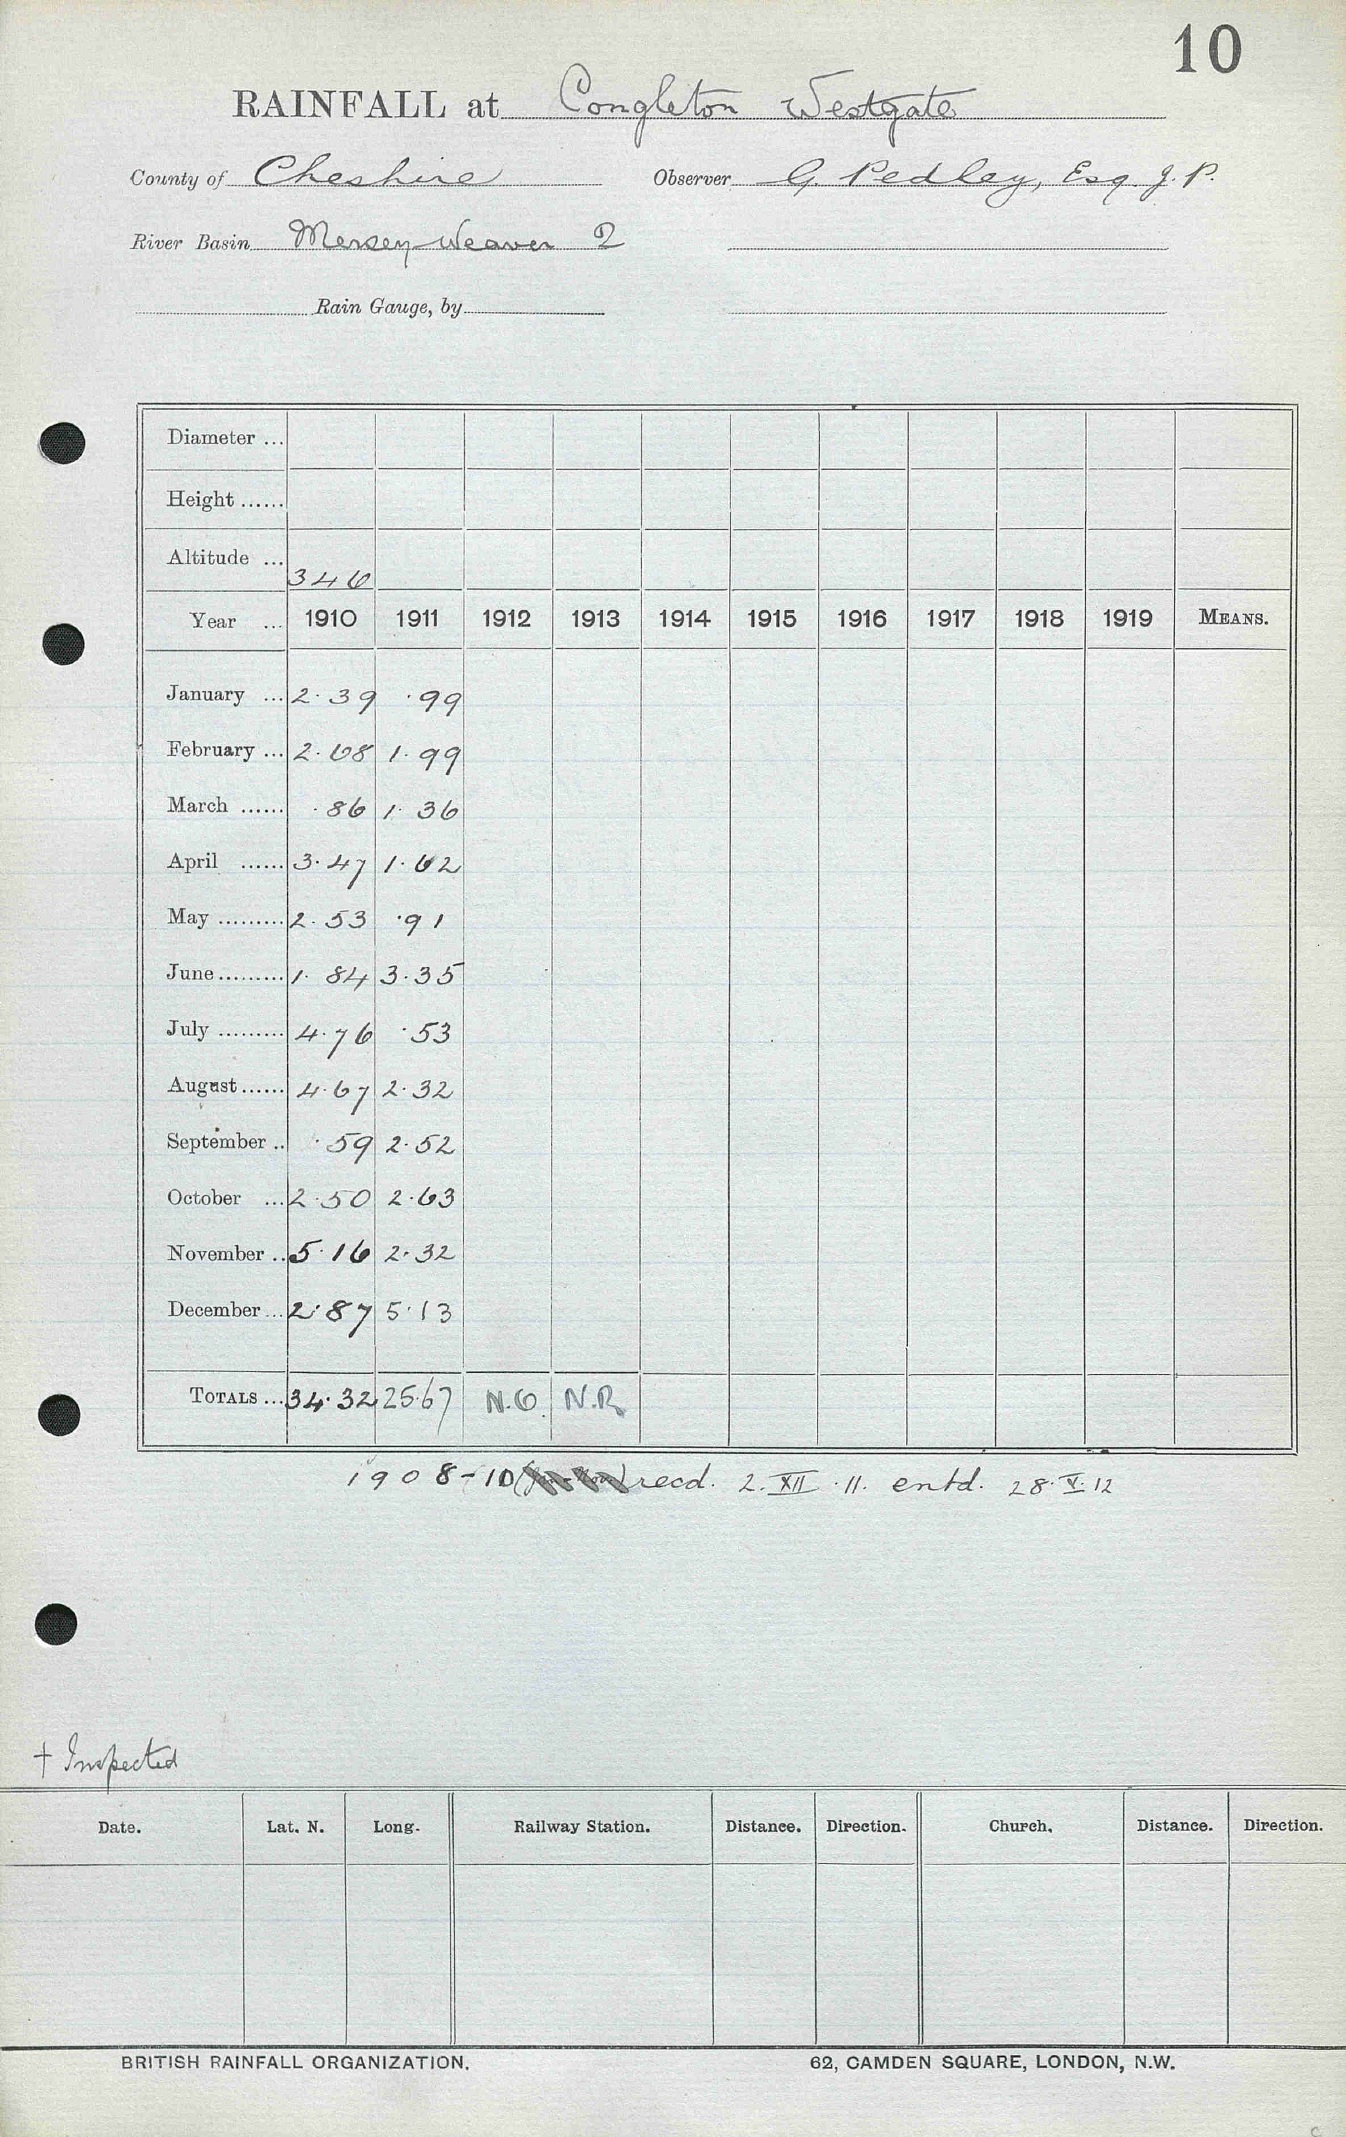 10
RAINFALL at Congleton Westgate
County of Cheshire Observer G. Pedley, Esq J. P.
River Basin Mersey-Weaver 2
Rain Gauge, by
Diameter ...
Height ......
Altitude ... 346
Year ... 1910 1911 1912 1913 1914 1915 1916 1917 1918 1919 MEANS.
January ... 2.39 .99
February ... 2.68 1.99
March ...... .86 1.36
April ...... 3.47 1.62
May ......... 2.53 .91
June ......... 1.84 3.35
July ......... 4.76 .53
August ...... 4.67 2.32
September .. .59 2.52
October ... 2.50 2.63
November .. 5.16 2.32
December ... 2.87 5.13
TOTALS ... 34.32 25.67 N.O. N.R.
1908-10 recd. 2.XII.11. entd. 28.V.12
† Inspected
Date. Lat. N. Long. Railway Station. Distance. Direction. Church. Distance. Direction.
BRITISH RAINFALL ORGANIZATION. 62, CAMDEN SQUARE, LONDON, N.W.